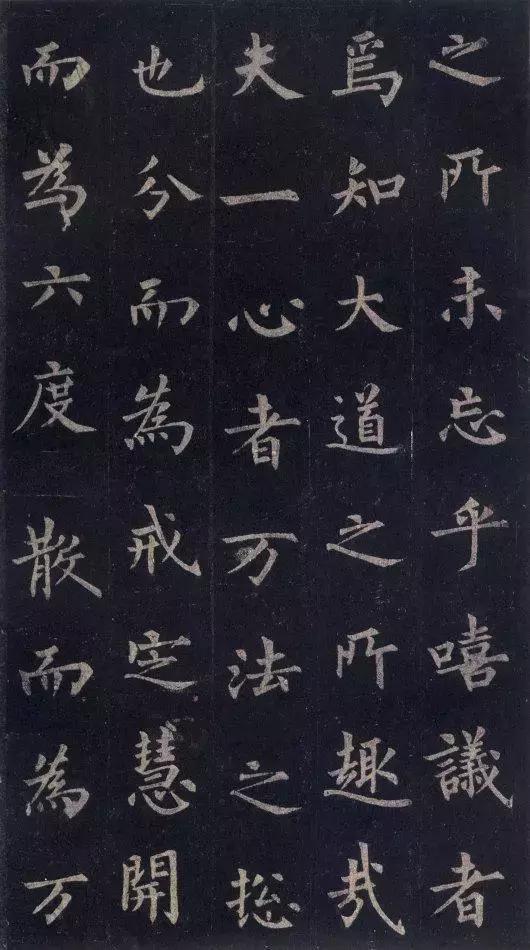 之所未忘乎嘻議者
焉知大道之所趣哉
夫一心者万法之捴
也分而為戒定慧開
而為六度散而為万